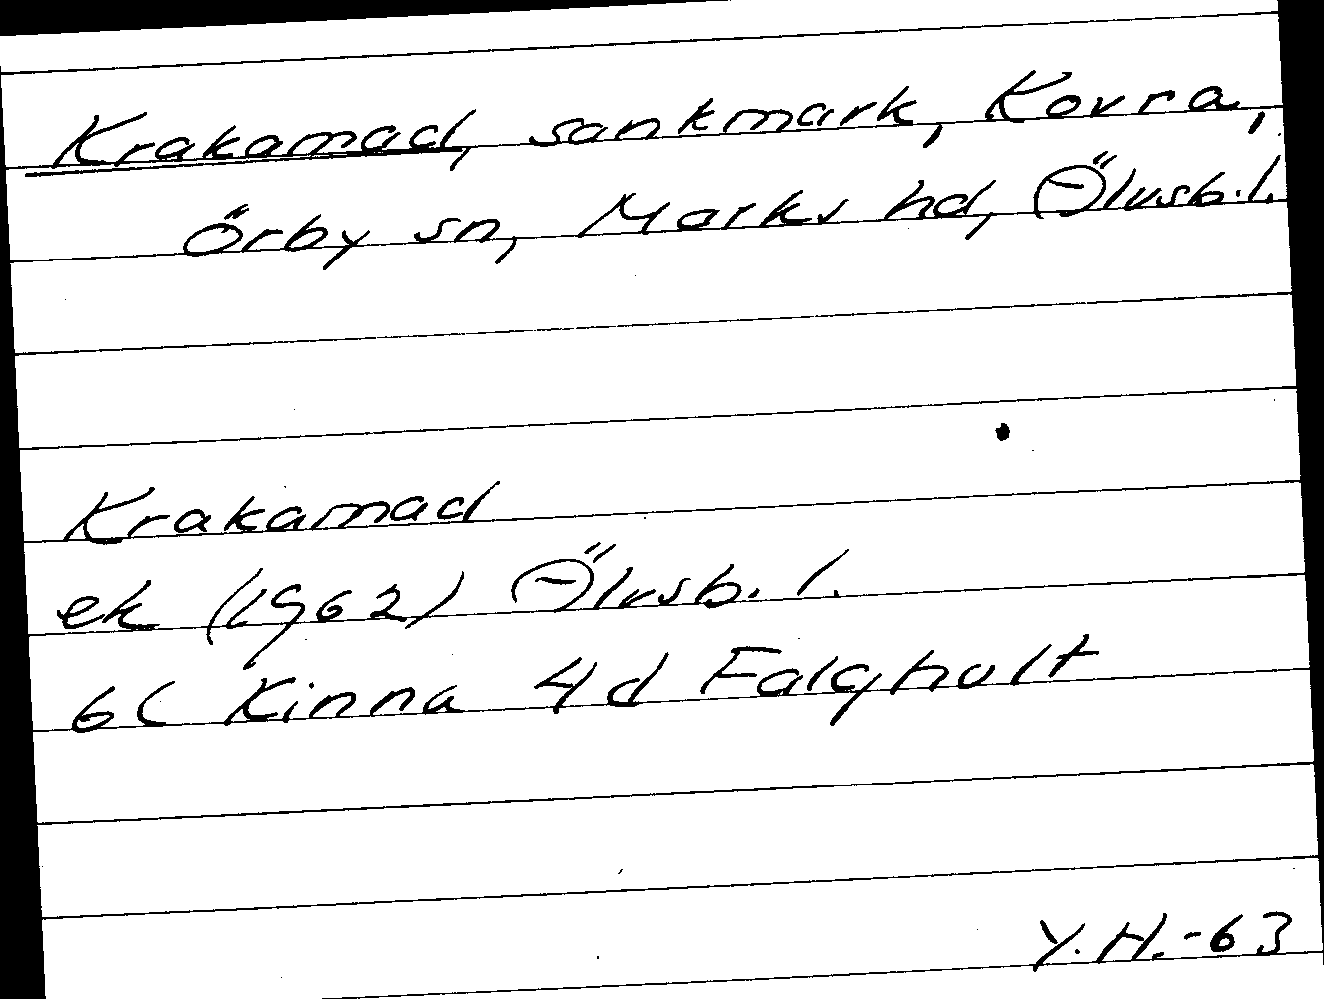 Krakamad, sankmark, Kovra,
Örby sn, Marks hd, Älvsb. l.
Krakamad
ek (1962) Älvsb. l.
6C Kinna 4d Falghult
Y.H.-63